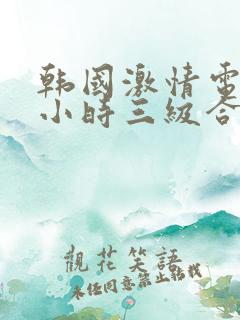 韩國激情電
小時三級合
觀花笑語
未经同意禁止转载